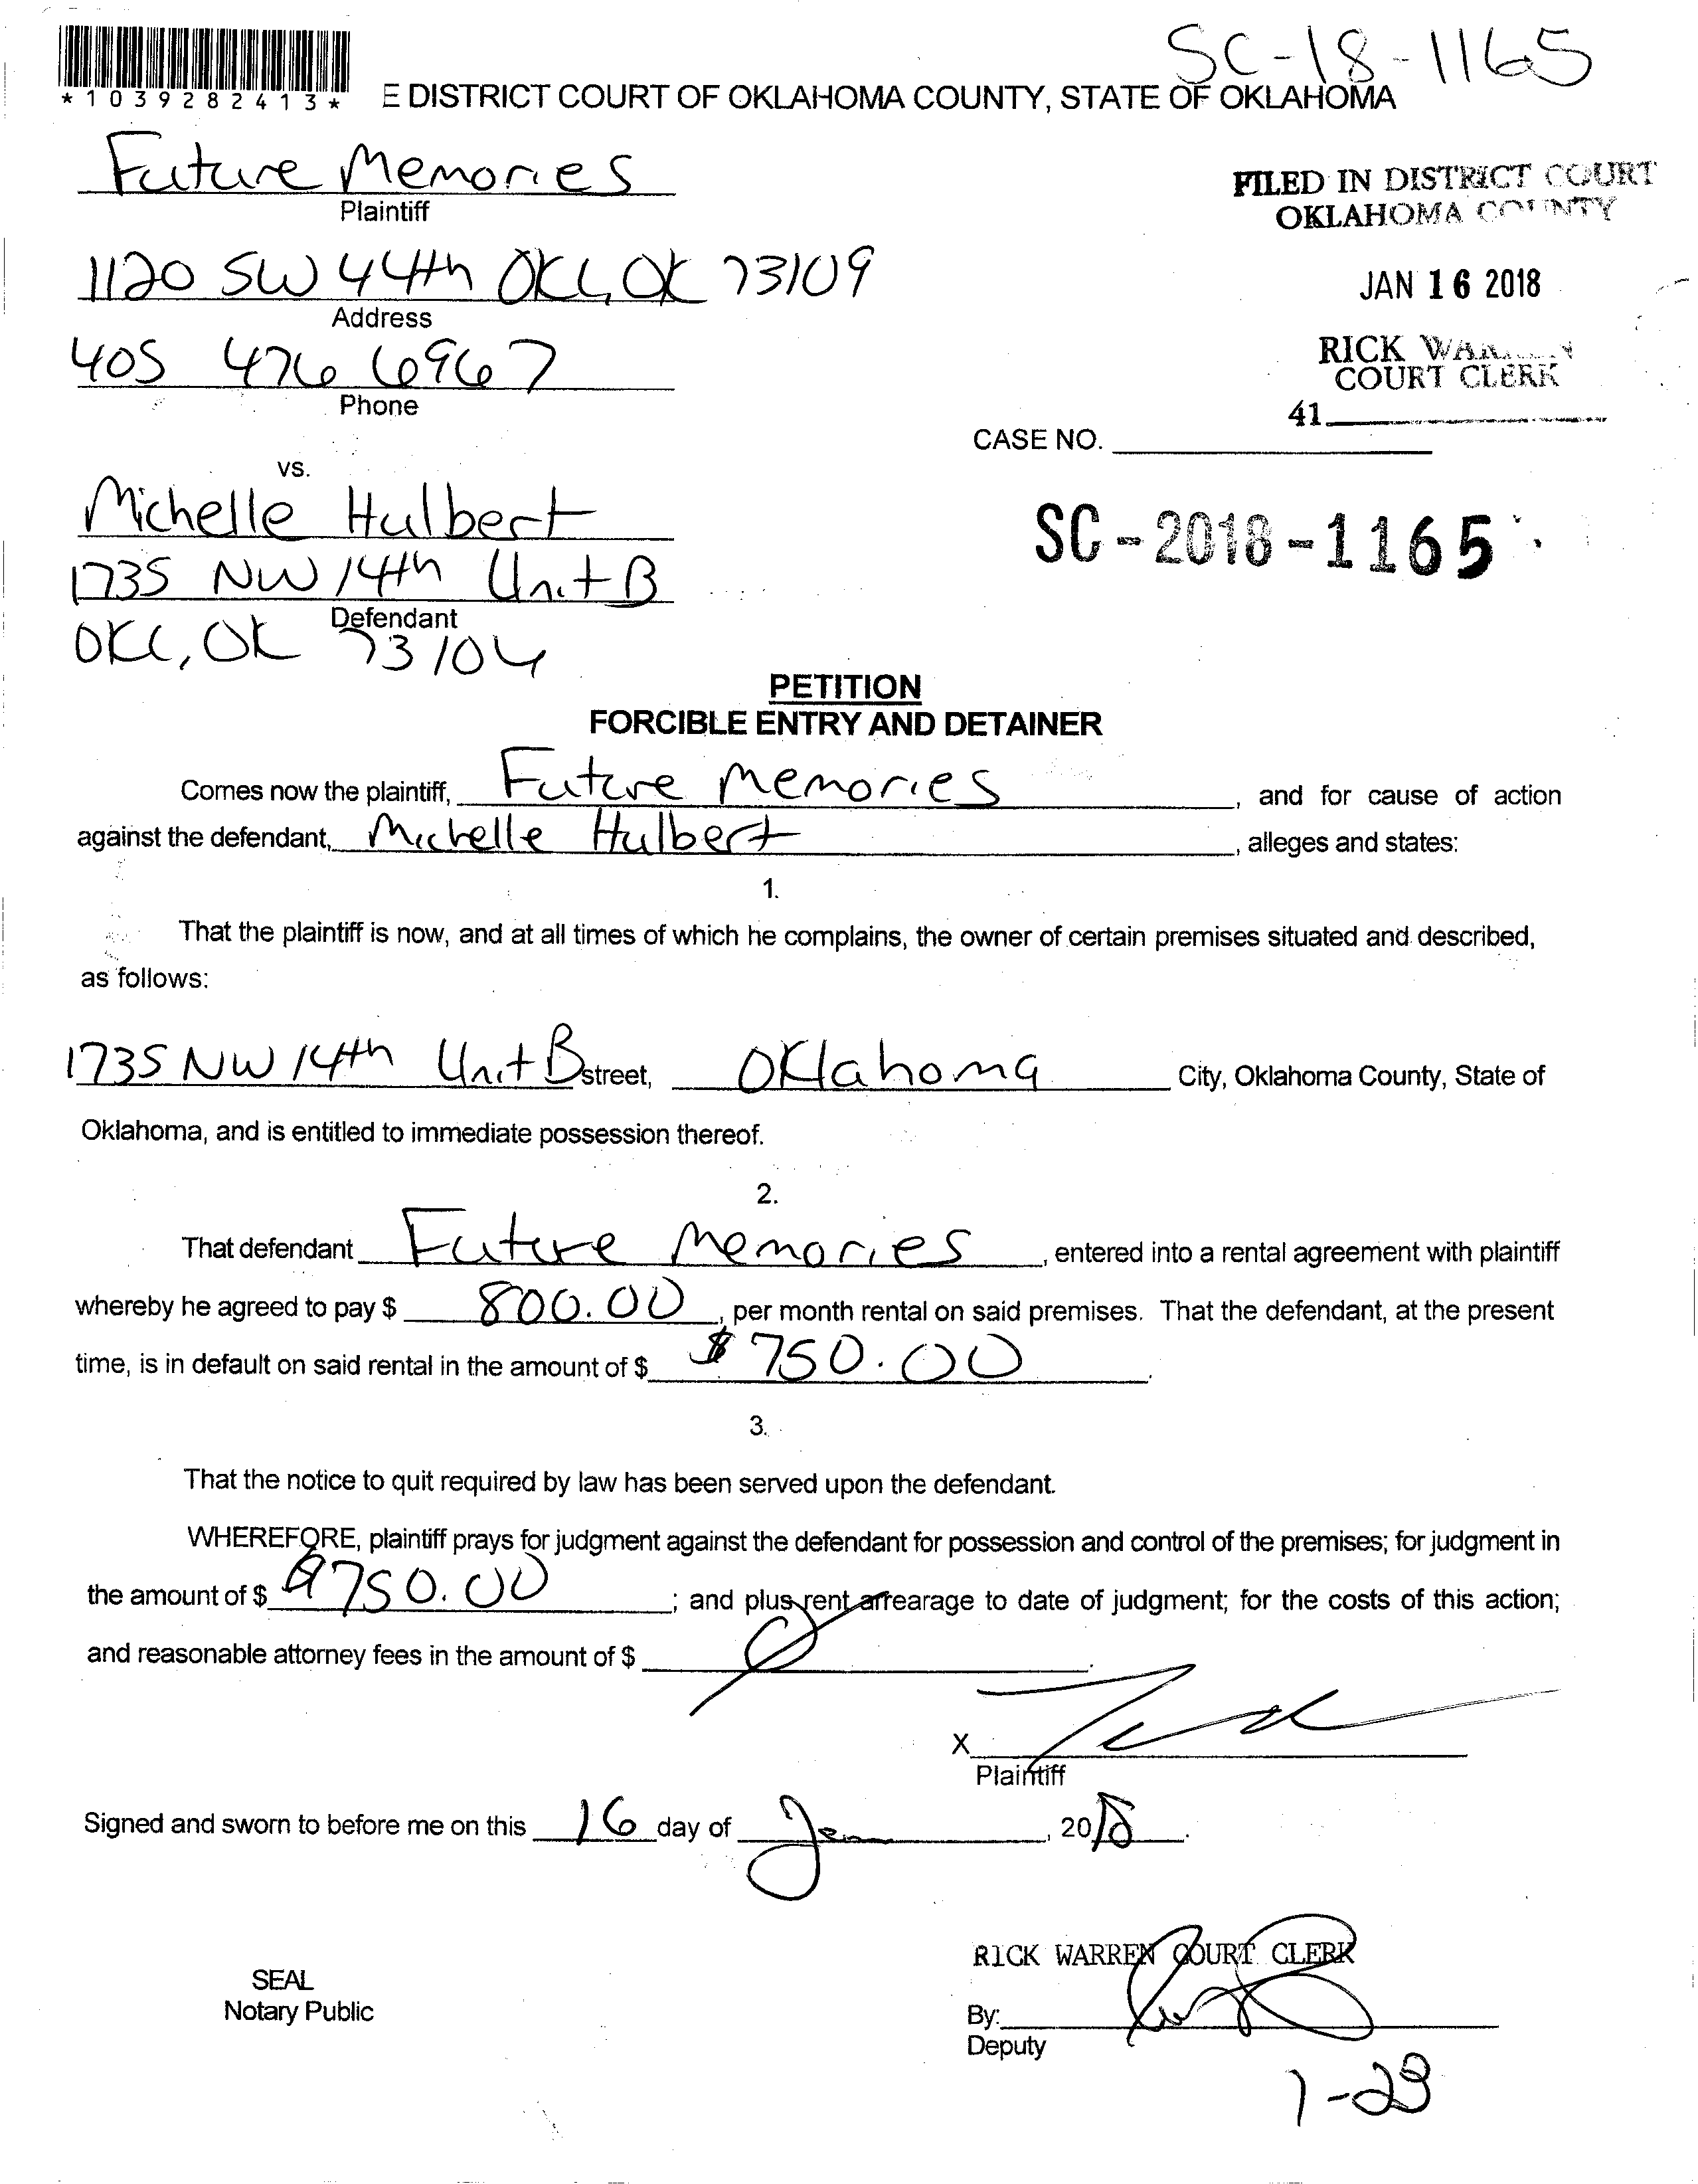 SC-18-1165
*1039282413*
E DISTRICT COURT OF OKLAHOMA COUNTY, STATE OF OKLAHOMA
Future Memories
Plaintiff
FILED IN DISTRICT COURT
OKLAHOMA COUNTY
1120 SW 44th OKC, OK 73109
Address
JAN 16 2018
405 476 6967
Phone
RICK WARREN
COURT CLERK
41
CASE NO.
vs.
Michelle Hulbert
SC-2018-1165
1735 NW 14th Unit B
Defendant
OKC, OK 73104
PETITION
FORCIBLE ENTRY AND DETAINER
Comes now the plaintiff, Future Memories, and for cause of action
against the defendant, Michelle Hulbert, alleges and states:
1.
That the plaintiff is now, and at all times of which he complains, the owner of certain premises situated and described,
as follows:
1735 NW 14th Unit B street, Oklahoma City, Oklahoma County, State of
Oklahoma, and is entitled to immediate possession thereof.
2.
That defendant Future Memories, entered into a rental agreement with plaintiff
whereby he agreed to pay $ 800.00, per month rental on said premises. That the defendant, at the present
time, is in default on said rental in the amount of $ $750.00.
3.
That the notice to quit required by law has been served upon the defendant.
WHEREFORE, plaintiff prays for judgment against the defendant for possession and control of the premises; for judgment in
the amount of $ $750.00; and plus rent arrearage to date of judgment; for the costs of this action;
and reasonable attorney fees in the amount of $ .
X
Plaintiff
Signed and sworn to before me on this 16 day of Jan, 2018.
RICK WARREN COURT CLERK
SEAL
Notary Public
By:
Deputy
1-23